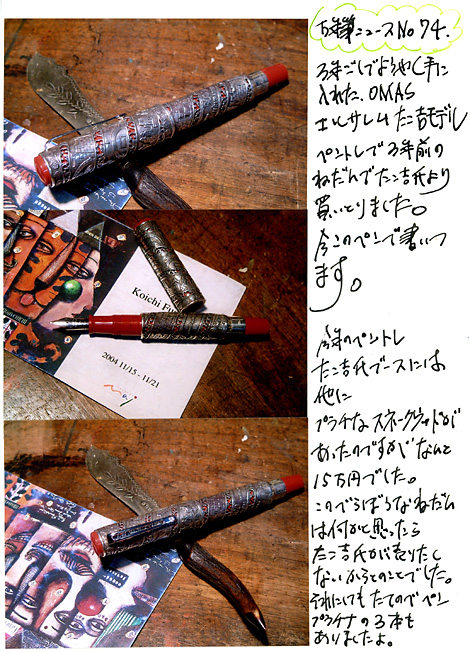 万年筆ニュースNo74.
3年ごしでようやく手に
入れた、OMAS
エルサレムたこ吉モデル
ペントレで3年前の
ねだんでたこ吉氏より
買いとりました。
今このペンで書いつ
ます。
今年のペントレ
たこ吉氏ブースには
他に
プラチナスネークウッドが
あったのですがなんと
15万円でした。
このべらぼうなねだん
は何かと思ったら
たこ吉氏がで売りたく
ないからとのことでした。
それにしても たてのでペン
プラチナの3本も
ありましたよ。
Koichi
2004 11/15 - 11/21